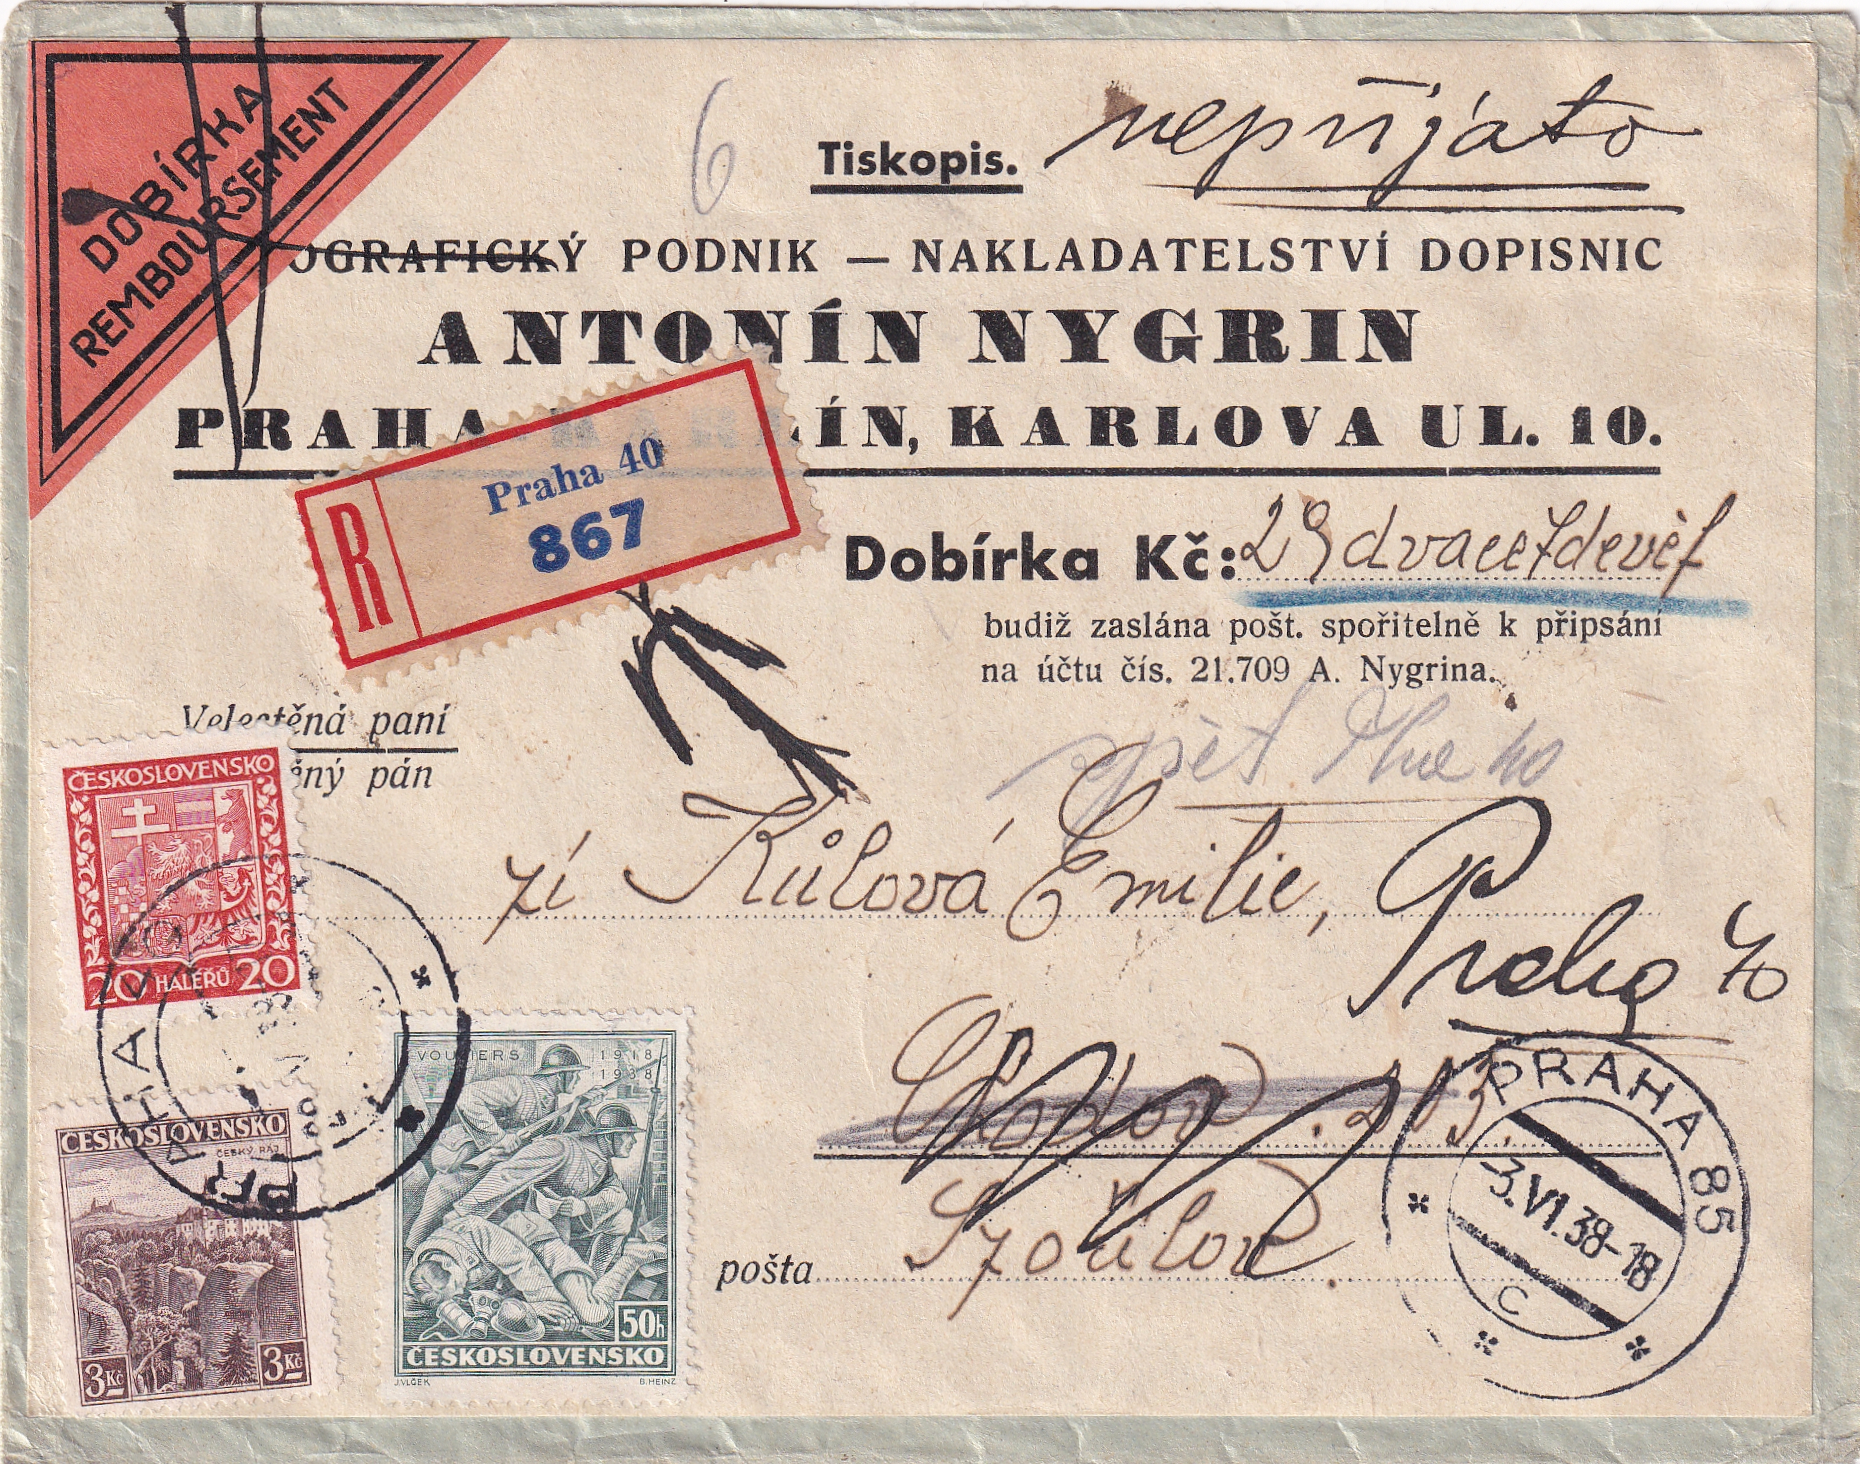 DOBÍRKA
REMBOURSEMENT
6
Tiskopis.
nepřijato
OGRAFICKÝ PODNIK — NAKLADATELSTVÍ DOPISNIC
ANTONÍN NYGRIN
PRAHA KARLÍN, KARLOVA UL. 10.
R
Praha 40
867
Dobírka Kč: 29 dvacetdevět
budiž zaslána pošt. spořitelně k připsání
na účtu čís. 21.709 A. Nygrina.
zpět
40
Velectěná paní
ěný pán
Kůlová Emilie,
Praha 40
ČESKOSLOVENSKO
20 HALÉŘŮ 20
PRAHA 85
-3.VI.38-18
C
ČESKOSLOVENSKO
ČESKÝ RÁJ
3 Kč
3 Kč
VOUZIERS 1918
1938
50h
ČESKOSLOVENSKO
J.VLČEK
B.HEINZ
pošta